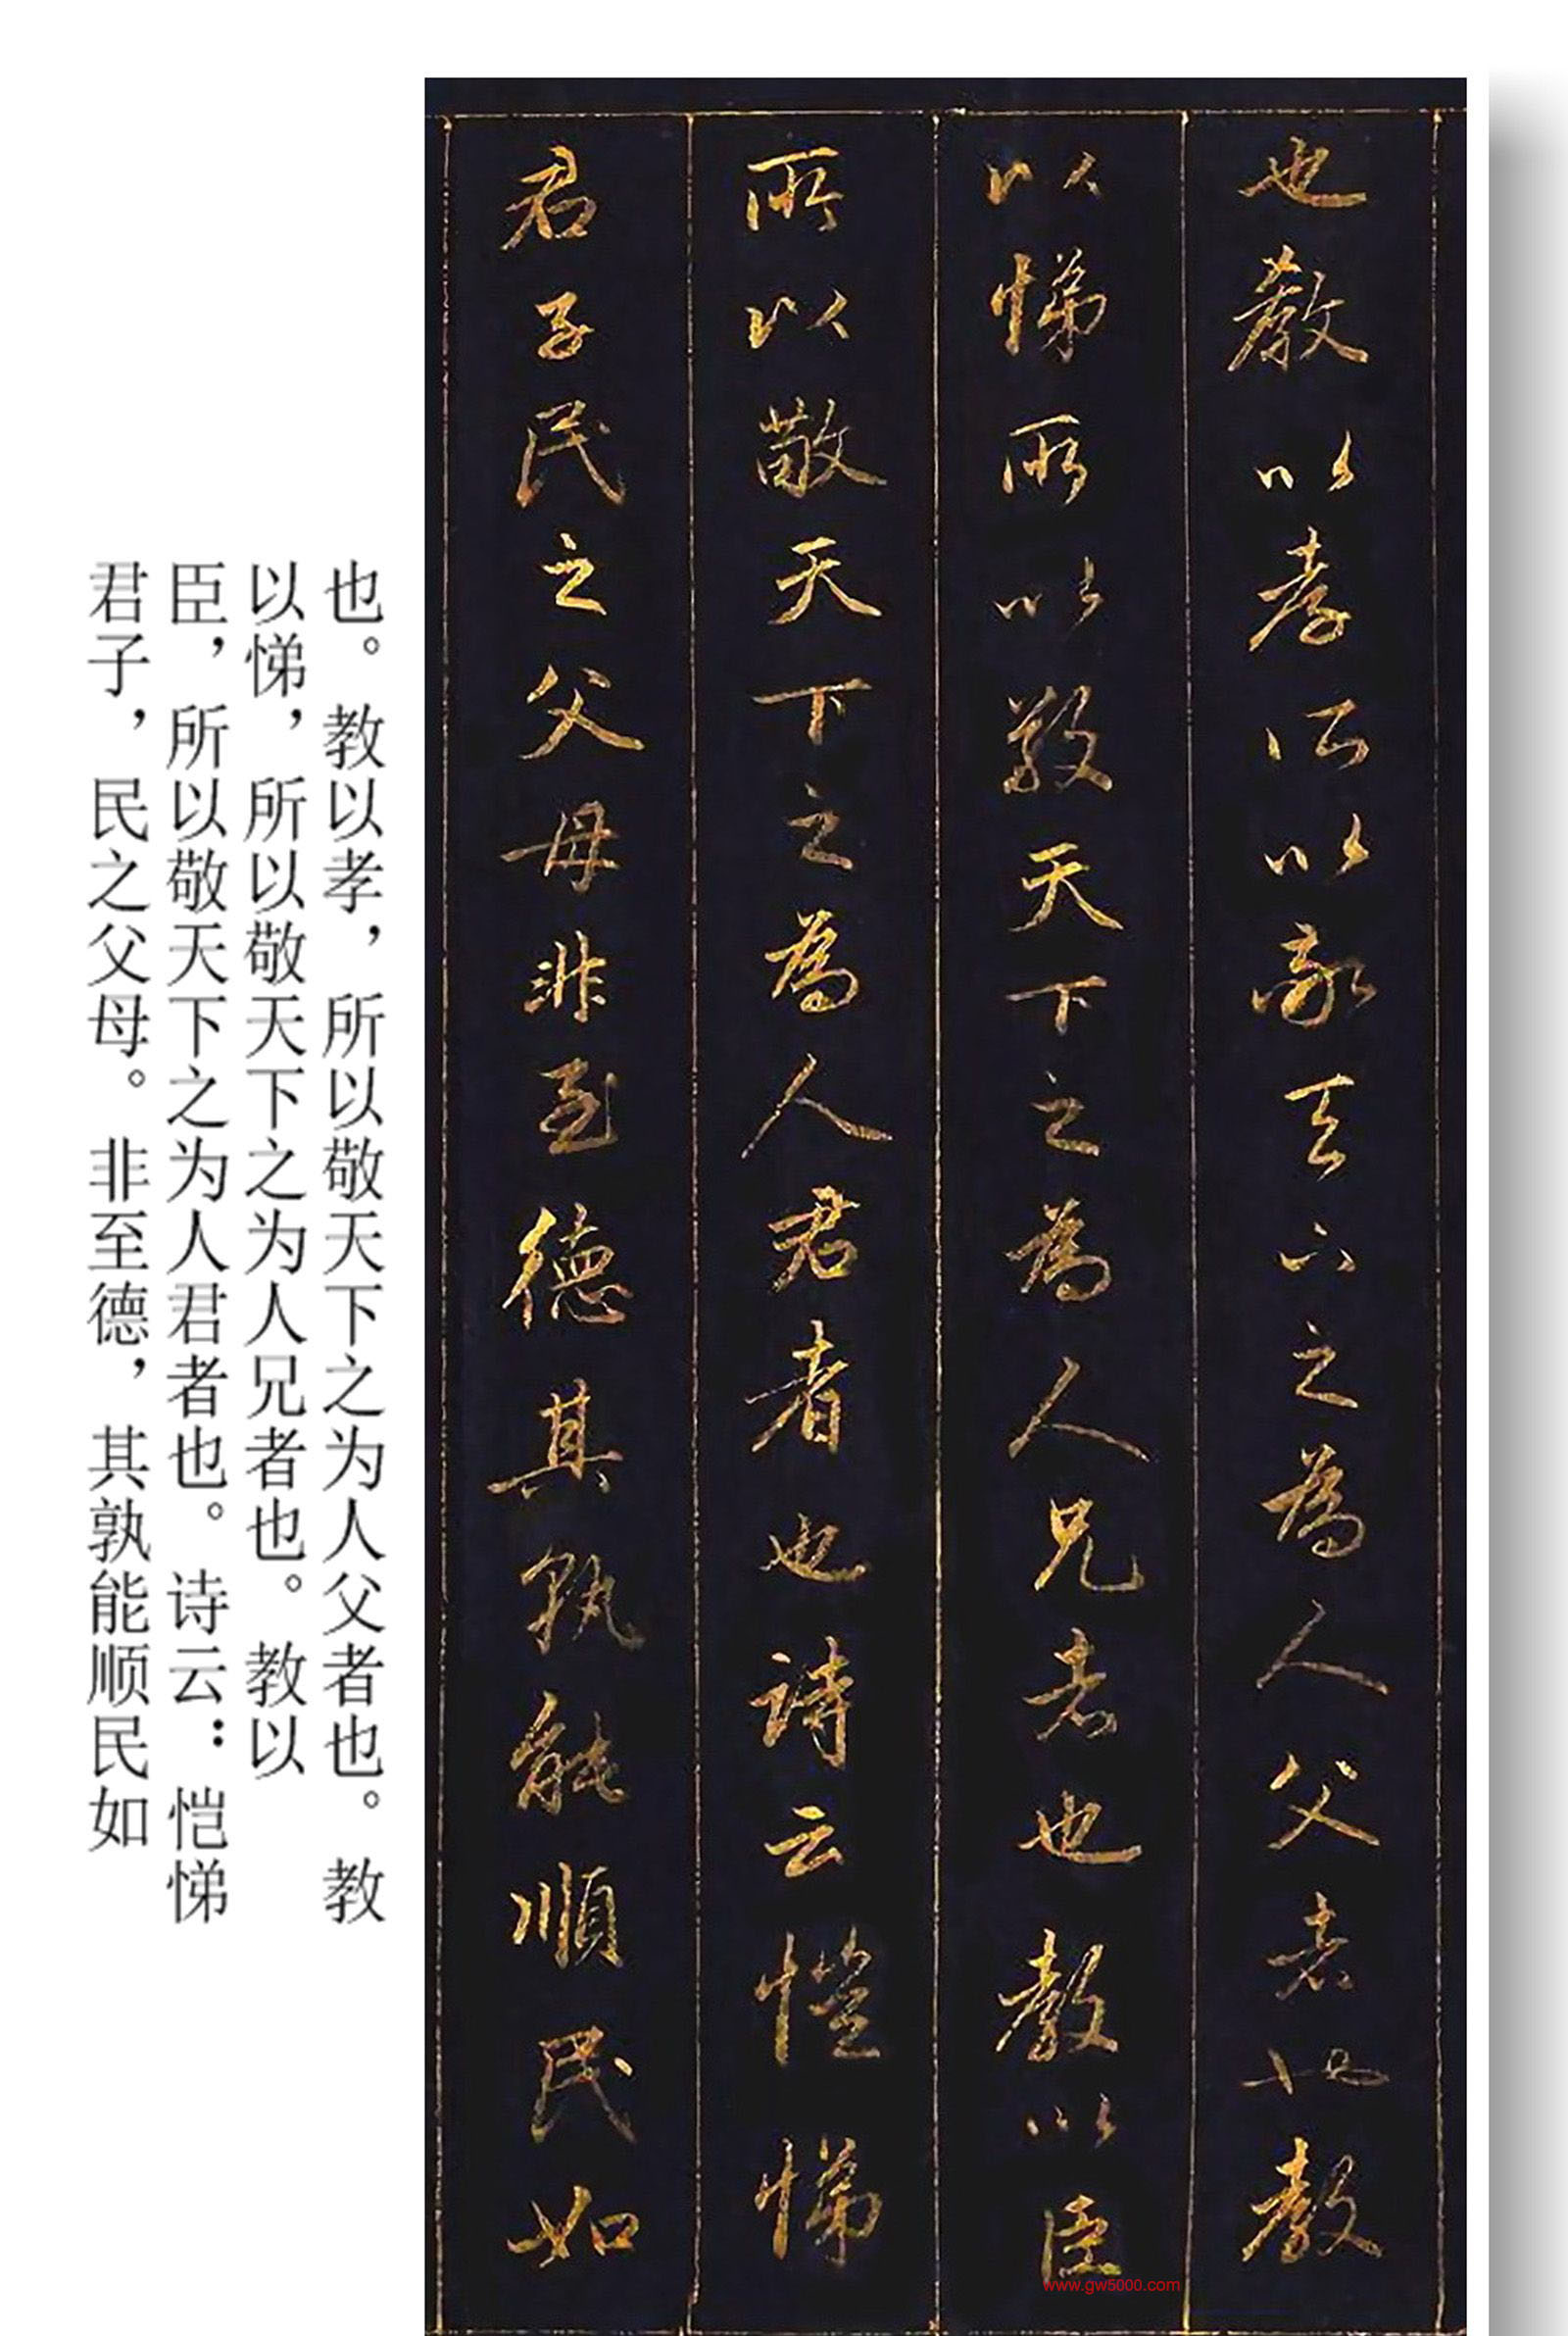 也教以孝所以敬天下之為人父者也教
以悌所以敬天下之為人兄者也教以臣
所以敬天下之為人君者也詩云愷悌
君子民之父母非至德其孰能順民如
也。教以孝，所以敬天下之为人父者也。教
以悌，所以敬天下之为人兄者也。教以
臣，所以敬天下之为人君者也。诗云：恺悌
君子，民之父母。非至德，其孰能顺民如
www.gw5000.com